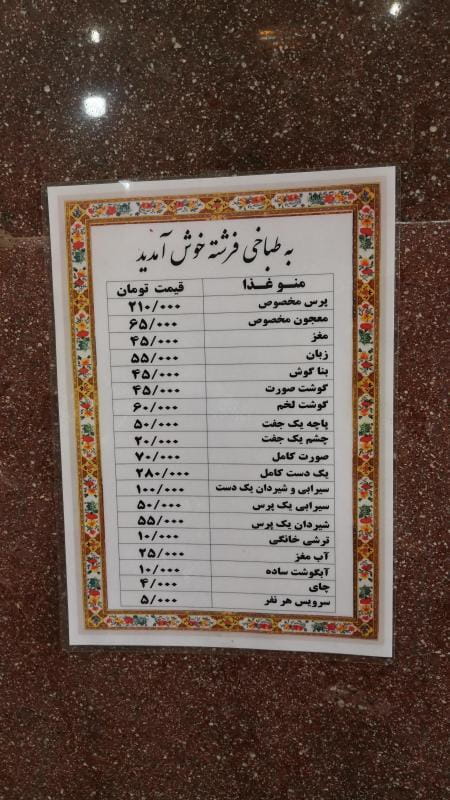 به طباخی فرشته خوش آمدید
منو غذا قیمت تومان
پرس مخصوص ۲۱۰/۰۰۰
معجون مخصوص ۶۵/۰۰۰
مغز ۴۵/۰۰۰
زبان ۵۵/۰۰۰
بنا گوش ۴۵/۰۰۰
گوشت صورت ۴۵/۰۰۰
گوشت لخم ۶۰/۰۰۰
پاچه یک جفت ۵۰/۰۰۰
چشم یک جفت ۲۰/۰۰۰
صورت کامل ۷۰/۰۰۰
یک دست کامل ۲۸۰/۰۰۰
سیرابی و شیردان یک دست ۱۰۰/۰۰۰
سیرابی یک پرس ۵۰/۰۰۰
شیردان یک پرس ۵۵/۰۰۰
ترشی خانگی ۱۰/۰۰۰
آب مغز ۲۵/۰۰۰
آبگوشت ساده ۱۰/۰۰۰
چای ۴/۰۰۰
سرویس هر نفر ۵/۰۰۰